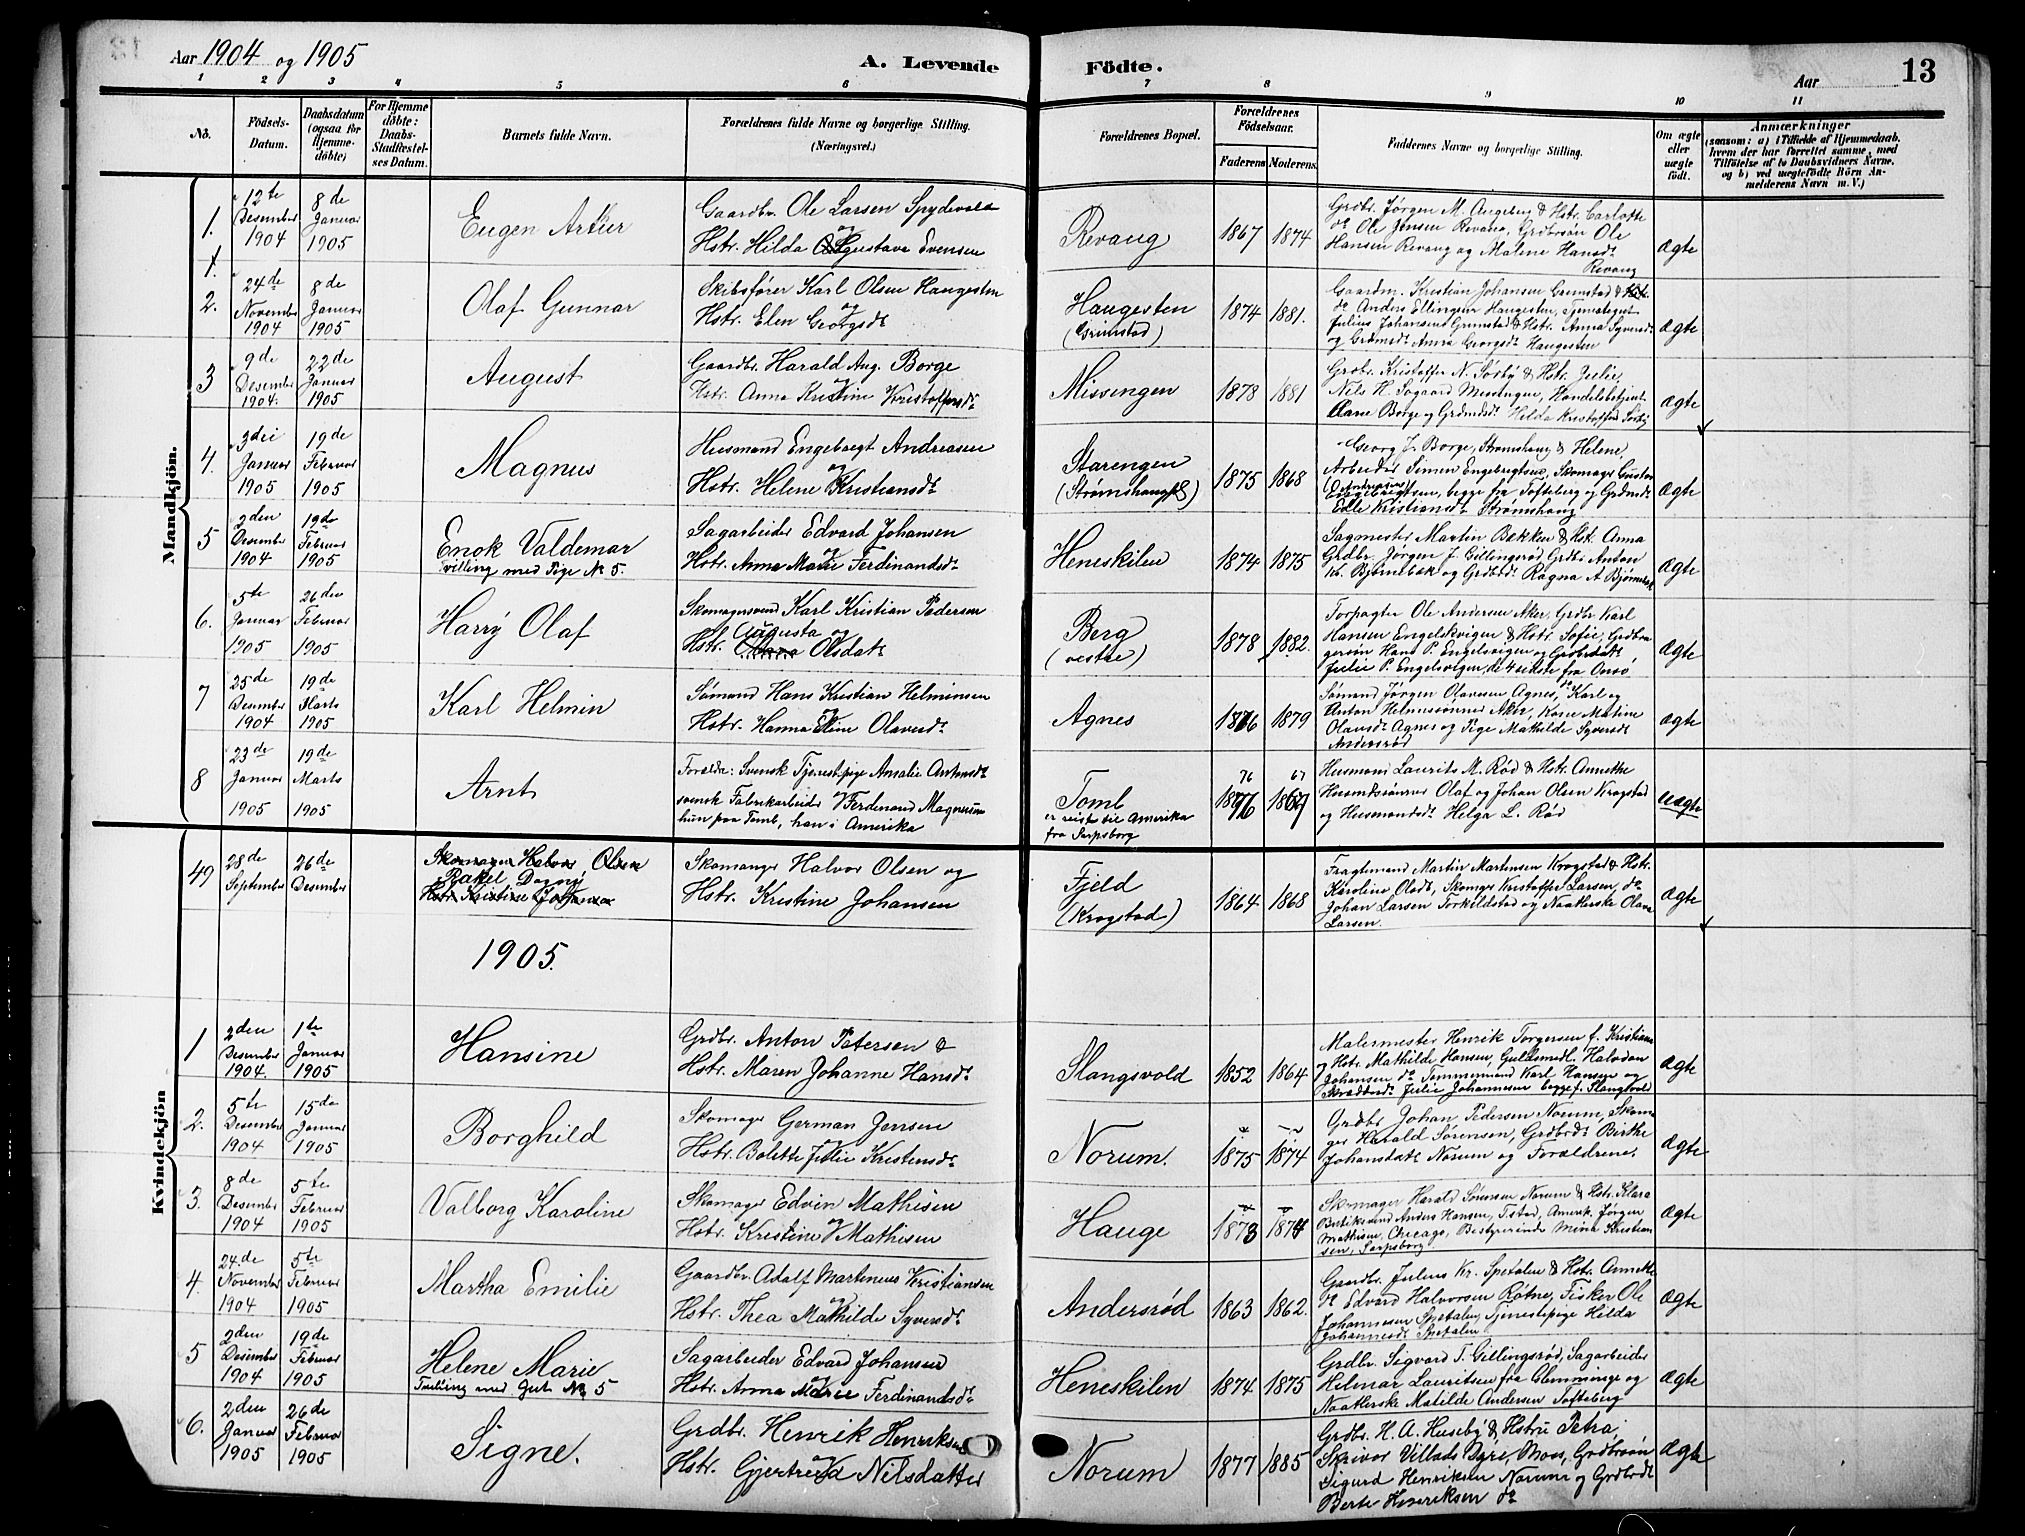 Aar 1904 og 1905
A. Levende Födte.
Aar
13
1 2 3 4 5 6 7 8 9 10 11
No.
Födsels-Datum.
Daabsdatum (ogsaa for Hjemmedöbte)
For Hjemmedöbte: Daabs-Stadfæstelses Datum.
Barnets fulde Navn.
Forældrenes fulde Navne og borgerlige Stilling.
(Næringsvei.)
Forældrenes Bopæl.
Forældrenes Födselsaar.
Faderens Moderens
Faddernes Navne og borgerlige Stilling.
Om ægte eller uægte födt.
Anmærkninger
(saasom: a) i Tilfælde af Hjemmedaab, hvem der har forrettet samme, med Tilföielse af to Daabsvidners Navne. og b) ved uægtefödte Börn Anmelderens Navn m. V.)
Mandkjön.
1.
12te Desember 1904
8de Januar 1905
Eugen Artur
Gaardbr. Ole Larsen Spydevold
og
Hstr. Hilda Gustava Evensen
Revaug
1867 1874
Grdbr. Jørgen M. Augeberg & Hstr. Carlotte
do Ole Jensen Revaug, Grdbrsøn Ole
Hansen Revaug og Malene Hansdt
Revaug
Ægte
2.
24de November 1904
8de Januar 1905
Olaf Gunnar
Skibsfører Karl Olsen Haugesten
og
Hstr. Elen Georgsdt
Haugesten
(Grimstad)
1874 1881.
Gaardm. Kristian Johansen Grimstad & Hstr.
do Anders Ellingsen Haugesten, Tjenestegut
Julius Johansen Grimstad & Hstr. Anna Syversdt
og Grdmdt Anna Georgsdt Haugesten
Ægte
3
9de Desember 1904.
22de Januar 1905
August
Gaardbr. Harald Aug. Borge
Hstr. Anna Kristine Kristoffersdt
Missingen
1878 1881
Grdbr. Kristoffer N. Sørby & Hstr. Julie,
Nils H. Sogaard Missingen, Handelsbetjent
Borge og Grdmdst Hilda Kristoffsd Sørby
Ægte
4.
3dei Januar 1905
19de Februar 1905
Magnus
Husmand Engebregt Andreasen
og
Hstr. Helene Kristiansdt
Starengen
(Strømshaugpl)
1875 1868
Georg J. Borge, Strømshaug & Helene,
Arbeider Simen Engebrigtsen, Skomager Gustav
(Andreasen)
Engebrigtsen, begge fra Tofteberg og Grdmdt
Edle Kristiansdt Strømshaug
Ægte
5
2den Desember 1904
19de Februar 1905
Enok Valdemar
Tvilling med Pige No 5.
Sagarbeider Edvard Johansen
og
Hstr. Anna Marie Ferdinandsdt
Heneskilen
1874 1875
Sagmester Martin Bekken & Hst. Anna
Grdbr. Jørgen J. Gillingsrød, Grdbr Anton
Kl. Bjørnebæk og Grdbdt. Ragna A Bjørnebæk
Ægte
6.
5te Januar 1905
26den Februar 1905
Harry Olaf
Skomagersvend Karl Kristian Pedersen
Augusta og
Hstr. Olsdatt
Berg
(vestre)
1878 1882.
Forpagter Ole Andersen Aker, Grdbr Karl
Hansen Engelskvigen & Hstr. Sofie, Grdbru
gersøn Hans P. Engelsvigen og Grdbrdatt
Julie P. Engelsvigen, de 4 sidste fra Onsø
Ægte
7
25de Desember 1904
19de Marts 1905
Karl Helmin
Sømand Hans Kristian Helminsen
og
Hstr. Hanna Eline Olavusdt
Agnes
1876 1879
Sømand Jørgen Olavesen Agnes, do Karl og
Anton Helminsønner Aker, Karen Matine
Olausdt Agnes og Pige Mathilde Syversdt
Andersrød
Ægte
8
23de Januar 1905
19de Marts 1905
Arnt
Foræld: Svensk Tjenestepige Amalie Antonsdt
svensk Fabrikarbeider Ferdinand Magnusson
hun paa Tomb, han i Amerika
Tomb
er reist til Amerika
fra Sarpsborg
76 67
1876 1867
Husmand Laurits M. Rød & Hstr. Annette
Husmdssønner Olaf og Johan Olsen Krogstad
og Husmandsdt Helga L. Rød
Uægte
Kvindekjön
49
28de September
26de Desember
Skomager Halvor Olsen
Rakel Dagny
Hstr. Kristine Johansen
Skomager Halvor Olsen og
Hstr. Kristine Johansen
Fjeld
(Krogstad)
1864 1868
Fragtemand Martin Martensen Krogstad & Hstr.
Karoline Olsdt, Skomger Kristoffer Larsen, do
Johan Larsen Torkildstad og Naatlerske Olava
Larsen.
Ægte
1905.
1
2den Desember 1904.
1te Januar 1905
Hansine
Grdbr. Anton Petersen &
Hstr. Maren Johanne Hansdt
Slangsvold
1852 1864
Malermester Henrik Torgersen f. Kristiania
Hstr. Mathilde Hansen, Guldsmedl. Halvdan
Johansen do Tømmermand Karl Hansen og
Julie Johannesen begge f. Slangsvold
Ægte
2.
5te Desember 1904
15de Januar 1905
Borghild
Skomager German Jensen
Hstr. Bolette Julie Kristensdt
Norum.
1875 1874
Grdbr Johan Pedersen Norum, Skoma
ger Harald Sørensen, Grdbrdt Birthe
Johansdatt Norum og Forældrene.
Ægte
3.
8de Desember 1904
5te Februar 1905
Valborg Karoline
Skomager Edvin Mathisen
og
Hstr. Kristine Mathisen
Hauge
1873 1874
Skomager Harald Sørensen Norum & Hstr. Klara
Butiksmd Anders Hansen, Fstad, Amerik. Jørgen
Mathisen, Chicago, Bestyrerinde Mina Kristian
sen, Sarpsborg
Ægte
4.
24de November 1904
5te Februar 1905
Martha Emilie
Gaardbr. Adolf Martenius Kristiansen
og
Hstr. Thea Mathilde Syversdt
Andersrød
1863 1862.
Gaardbr. Julius Kr. Spetalen & Hstr. Annette
do Edvard Halvorsen Røtne, Fisker Ole
Johannesen Spetalen, Tjenestepige Hilda
Johannesdt Spetalen
Ægte
5
2den Desember 1904
19de Februar 1905
Helene Marie
Tvilling med Gut No 5
Sagarbeider Edvard Johansen
og
Hstr. Anna Marie Ferdinandsdt
Heneskilen
1874 1875
Grdbr. Sigvard T. Gillingsrød, Sagarbeider
Hilmar Lauritsen fra Glemminge og
Naatlerske Matilde Andersen Tofteberg
Ægte
6.
2den Januar 1905
26de Februar 1905
Signe.
Grdbr. Henrik Henriksen
og
Hstr. Gjertrud Nilsdatter
Norum
1877 1885
Grdbr. H. A. Huseby & Hstru Petra,
Skriver Villads Dyre, Moss, Grdbrsøn
Sigurd Henriksen Norum og Grdbrdt
Berte Henriksen do
Ægte